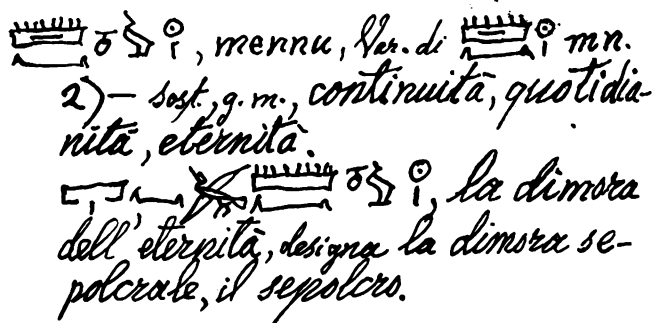 , mennu, Var. di mn.
2) – sost., g. m., continuità, quotidia-
nità, eternità.
, la dimora
dell'eternità, designa la dimora se-
polcrale, il sepolcro.